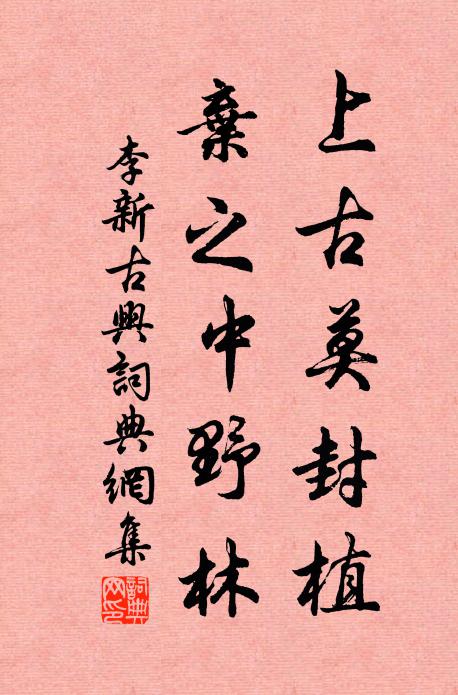 上古莫封植
棄之中野林
李新古興詞典網集
詞典網印